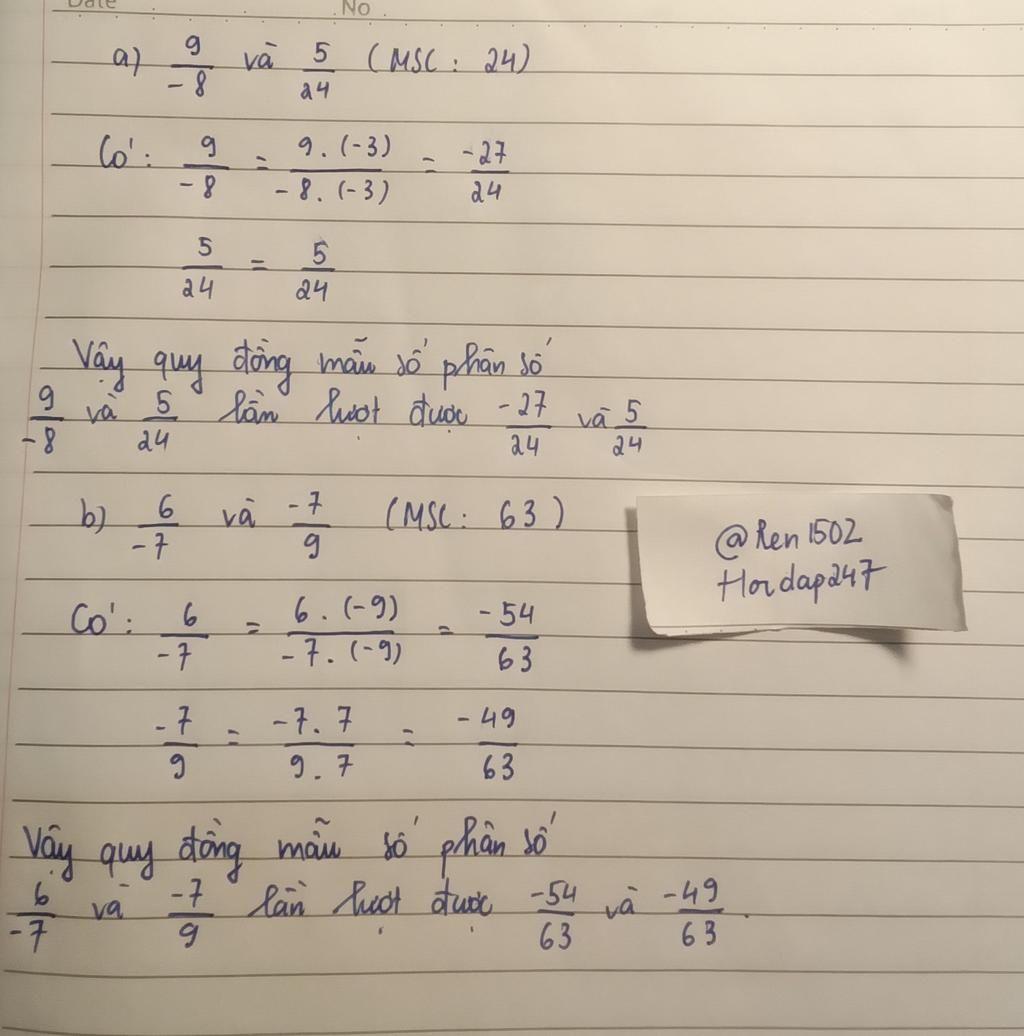 Date No
a) 9/-8 và 5/24 (MSC: 24)
Có: 9/-8 = 9.(-3)/-8.(-3) = -27/24
5/24 = 5/24
Vậy quy đồng mẫu số phân số
9/-8 và 5/24 lần lượt được -27/24 và 5/24
b) 6/-7 và -7/9 (MSC: 63)
@Ren1502
Hoidap247
Có: 6/-7 = 6.(-9)/-7.(-9) = -54/63
-7/9 = -7.7/9.7 = -49/63
Vậy quy đồng mẫu số phân số
6/-7 và -7/9 lần lượt được -54/63 và -49/63.